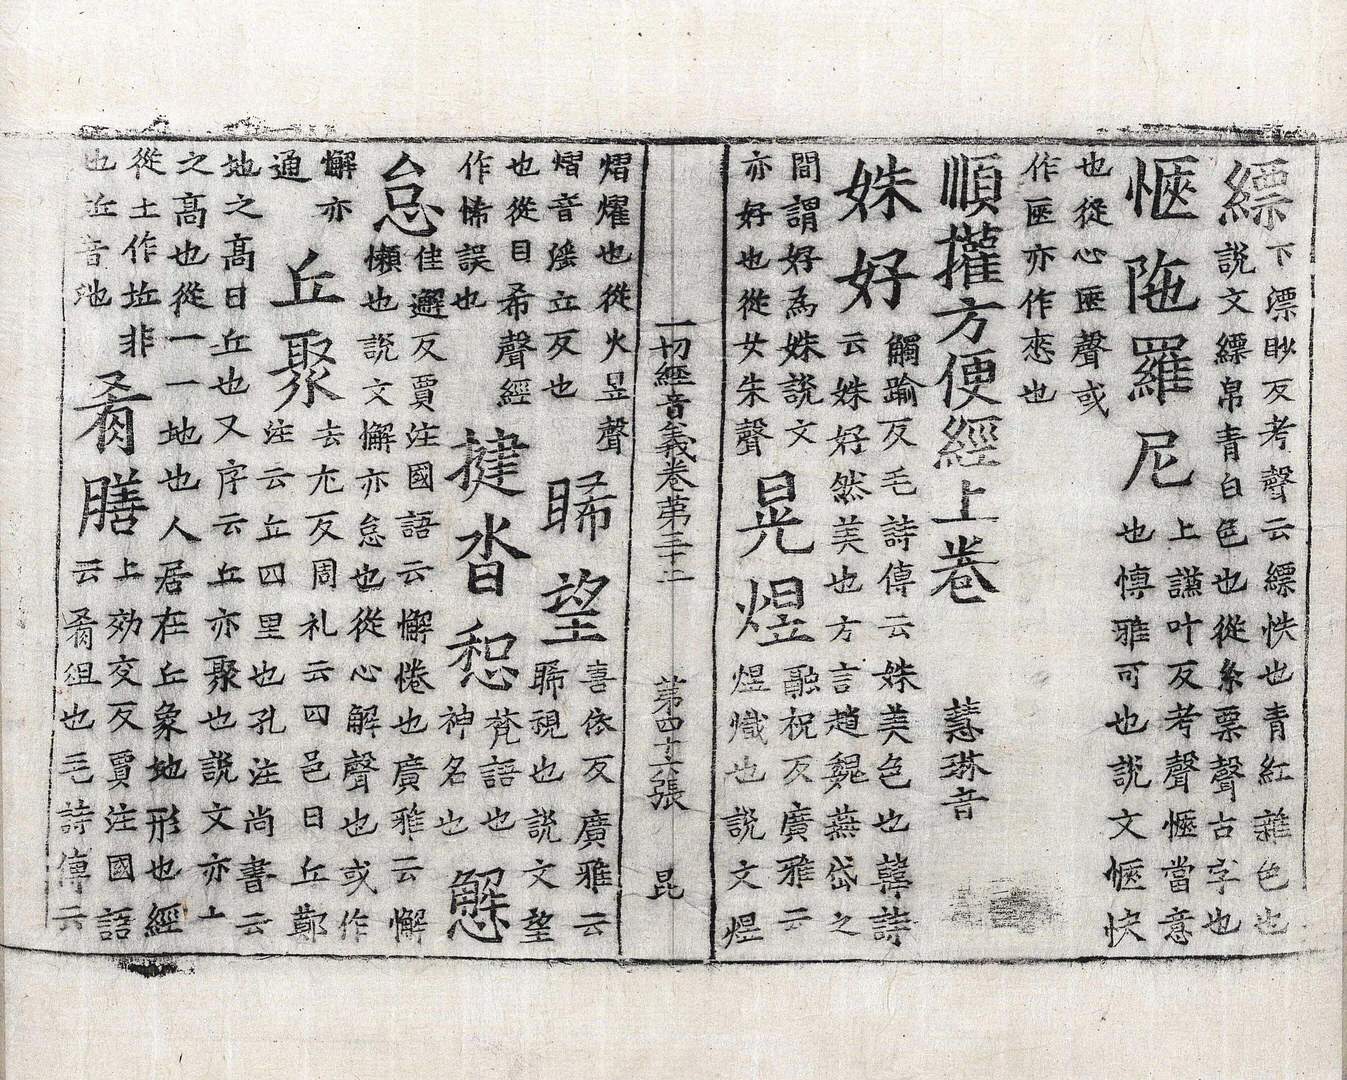 縹下漂眇反考聲云縹怢也青紅雜色也
說文縹帛青白色也從糸票聲古字也
愜陁羅尼上謙叶反考聲愜當意
也博雅可也說文愜快
也從心匧聲或
作匧亦作㤲也
順攉方便經上卷 慧琳音
姝好觸踰反毛詩傳云姝美色也韓詩
云姝好然美也方言趙魏燕岱之
間謂好為姝說文
亦好也從女朱聲
晃煜融祝反廣雅云
煜熾也說文煜
一切經音義卷第三十二 第四十六張 昆
熠燿也從火昱聲
熠音滛立反也
睎望喜依反廣雅云
睎視也說文望
也從目希聲經
作悕誤也
揵沓惒梵語也
神名也
懈怠佳邂反賈注國語云懈倦也廣雅云懈
懶也說文懈亦怠也從心解聲也或作
懈亦
通
丘聚去尢反周礼云四邑曰丘鄭
注云丘四里也孔注尚書云
地之高曰丘也又序云丘亦聚也說文亦土
之高也從一一地也人居在丘象地形也經
從土作坵非
也近音池
肴膳上効交反賈注國語
云肴俎也毛詩傳云